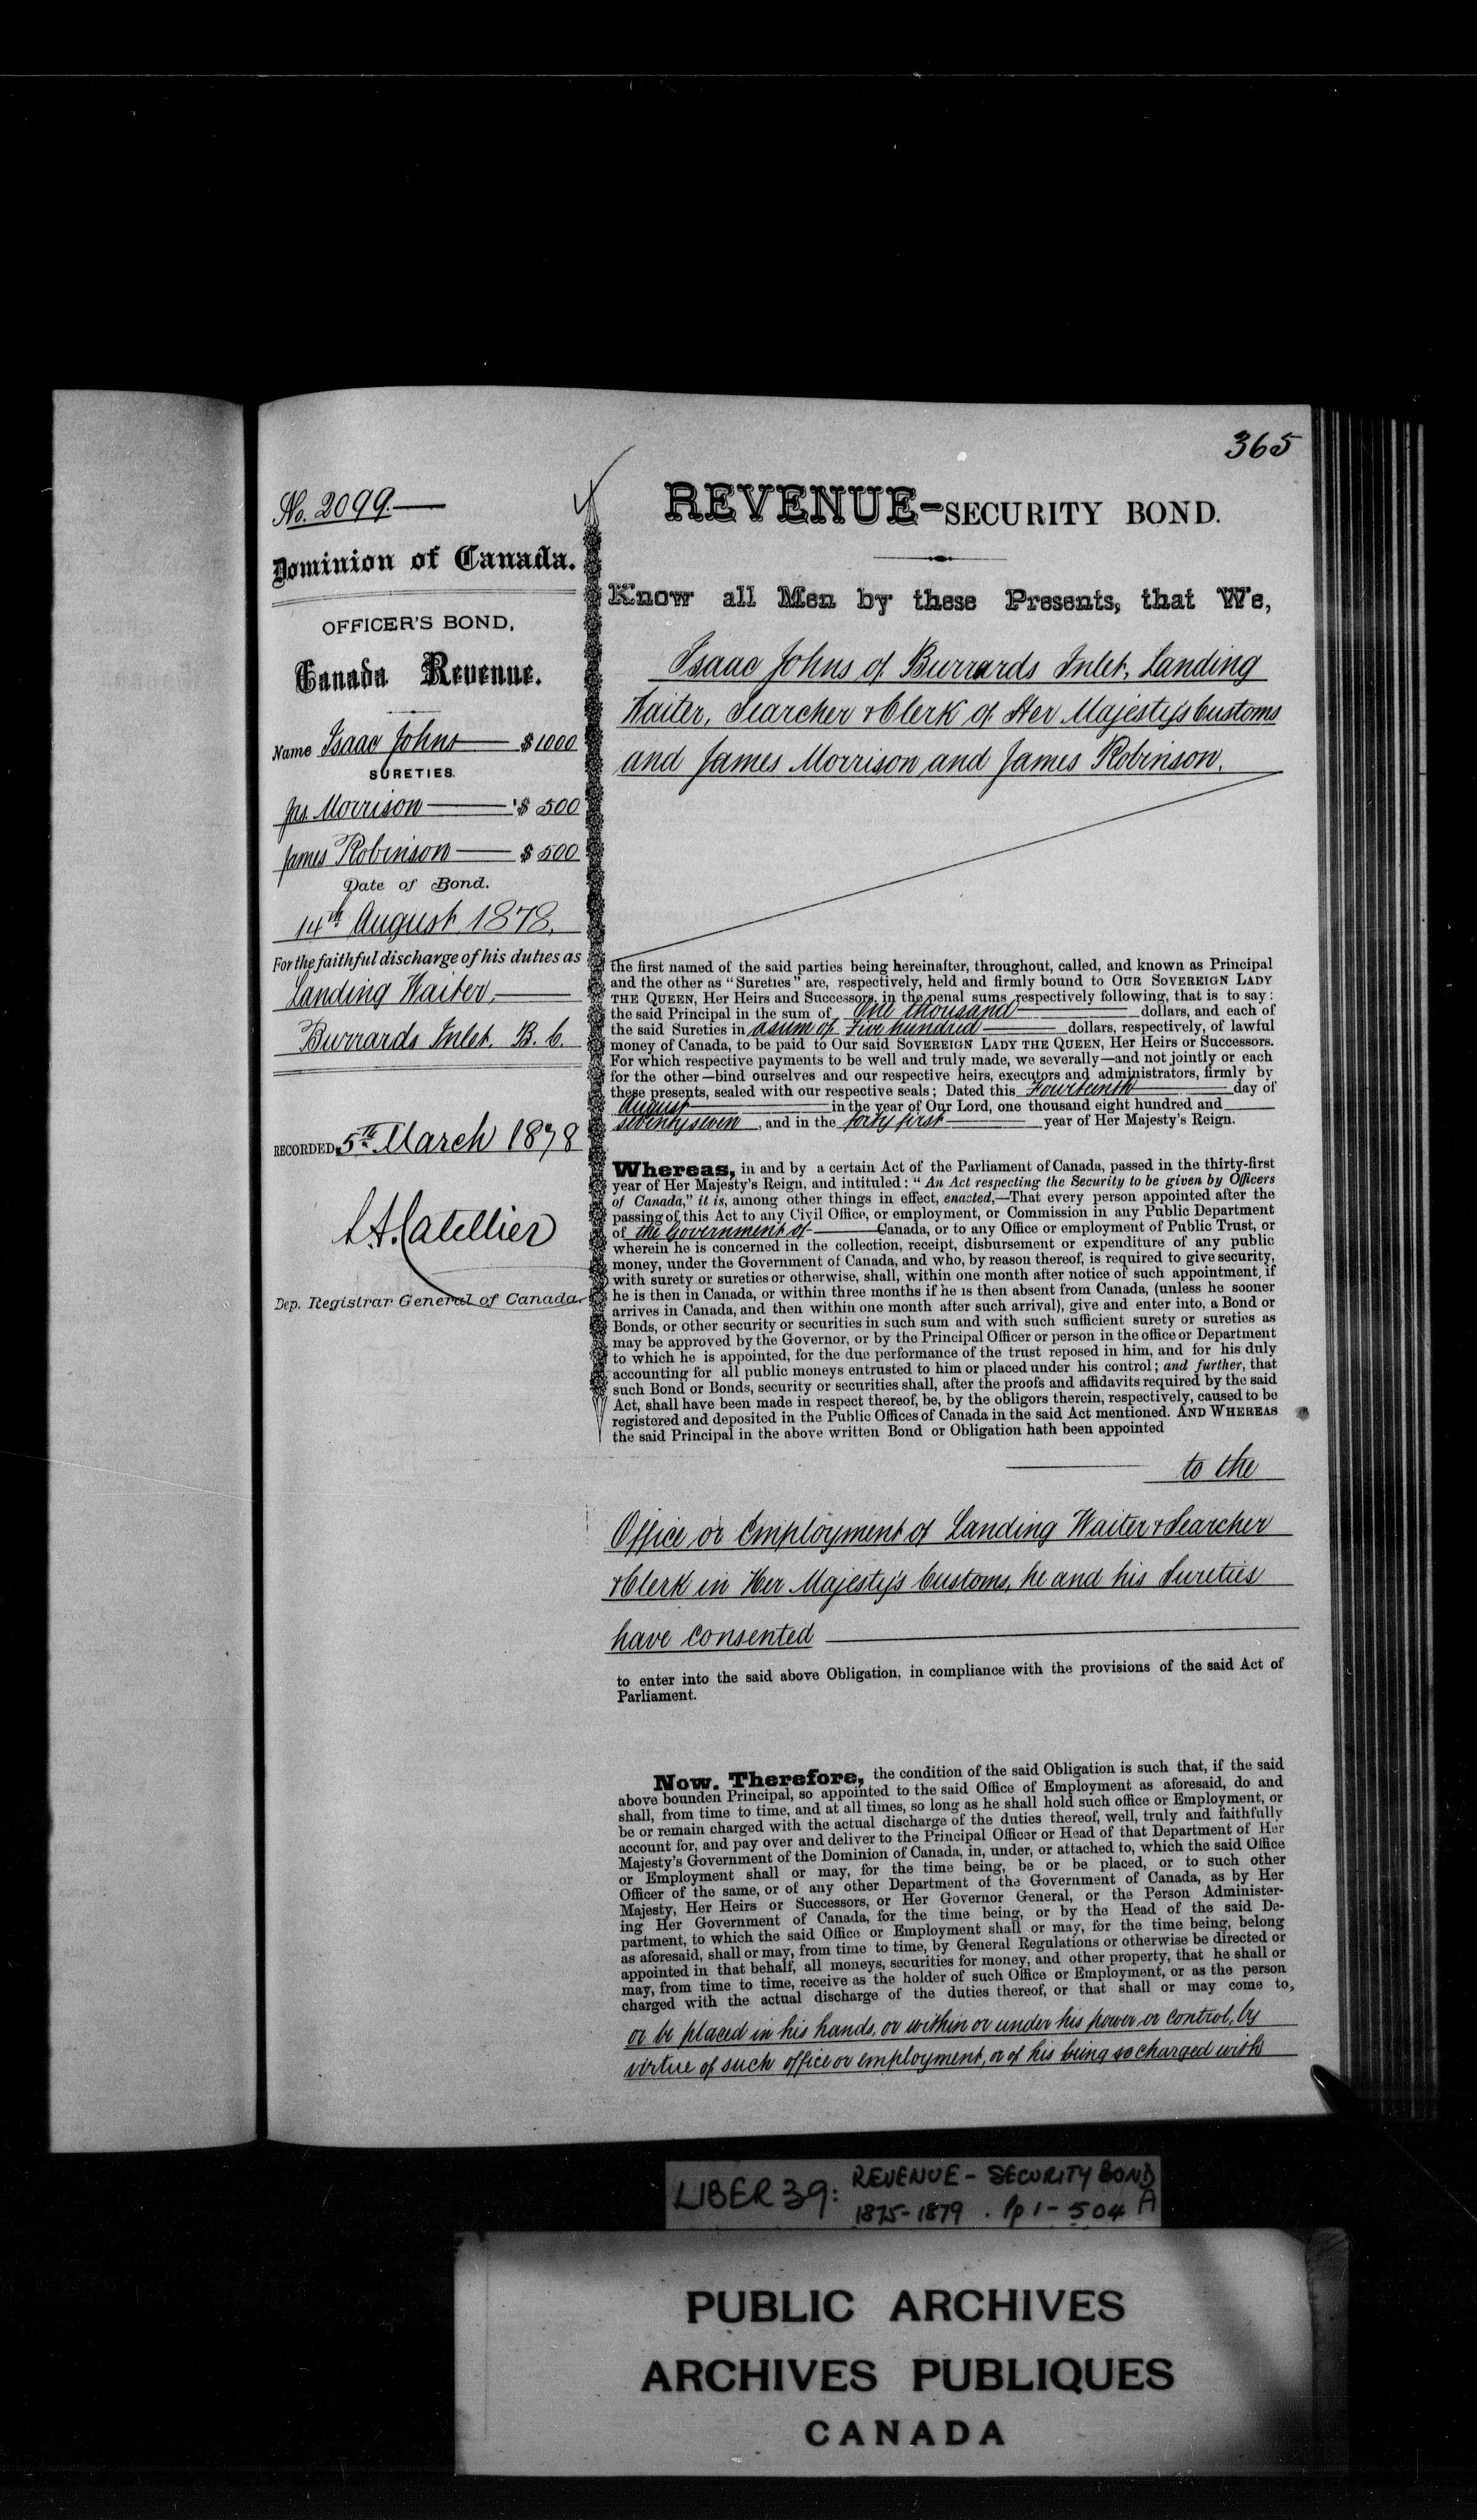 365
No. 2099.
Dominion of Canada.
OFFICER'S BOND,
Canada Revenue.
Name Isaac Johns $1000
SURETIES.
Jas. Morrison $ 500
James Robinson $ 500
Date of Bond.
14th August 1878.
For the faithful discharge of his duties as
Landing Waiter,
Burrards Inlet. B. C.
RECORDED, 5th March 1878
L.A. Catellier
Dep. Registrar General of Canada.
REVENUE-SECURITY BOND.
Know all Men by these Presents, that We,
Isaac Johns of Burrards Inlet, Landing
Waiter, Searcher & Clerk of Her Majesty's Customs
and James Morrison and James Robinson.
the first named of the said parties being hereinafter, throughout, called, and known as Principal
and the other as "Sureties" are, respectively, held and firmly bound to OUR SOVEREIGN LADY
THE QUEEN, Her Heirs and Successors, in the penal sums respectively following, that is to say:
the said Principal in the sum of One thousand dollars, and each of
the said Sureties in a sum of Five hundred dollars, respectively, of lawful
money of Canada, to be paid to Our said SOVEREIGN LADY THE QUEEN, Her Heirs or Successors.
For which respective payments to be well and truly made, we severally—and not jointly or each
for the other—bind ourselves and our respective heirs, executors and administrators, firmly by
these presents, sealed with our respective seals; Dated this Fourteenth day of
August in the year of Our Lord, one thousand eight hundred and
seventy seven, and in the forty first year of Her Majesty's Reign.
Whereas, in and by a certain Act of the Parliament of Canada, passed in the thirty-first
year of Her Majesty's Reign, and intituled: "An Act respecting the Security to be given by Officers
of Canada," it is, among other things in effect, enacted,—That every person appointed after the
passing of this Act to any Civil Office, or employment, or Commission in any Public Department
of the Government of Canada, or to any Office or employment of Public Trust, or
wherein he is concerned in the collection, receipt, disbursement or expenditure of any public
money, under the Government of Canada, and who, by reason thereof, is required to give security,
with surety or sureties or otherwise, shall, within one month after notice of such appointment, if
he is then in Canada, or within three months if he is then absent from Canada, (unless he sooner
arrives in Canada, and then within one month after such arrival), give and enter into, a Bond or
Bonds, or other security or securities in such sum and with such sufficient surety or sureties as
may be approved by the Governor, or by the Principal Officer or person in the office or Department
to which he is appointed, for the due performance of the trust reposed in him, and for his duly
accounting for all public moneys entrusted to him or placed under his control; and further, that
such Bond or Bonds, security or securities shall, after the proofs and affidavits required by the said
Act, shall have been made in respect thereof, be, by the obligors therein, respectively, caused to be
registered and deposited in the Public Offices of Canada in the said Act mentioned. AND WHEREAS
the said Principal in the above written Bond or Obligation hath been appointed
to the
Office or Employment of Landing Waiter & Searcher
& Clerk in Her Majesty's Customs, he and his Sureties
have consented
to enter into the said above Obligation, in compliance with the provisions of the said Act of
Parliament.
Now, Therefore, the condition of the said Obligation is such that, if the said
above bounden Principal, so appointed to the said Office of Employment as aforesaid, do and
shall, from time to time, and at all times, so long as he shall hold such office or Employment, or
be or remain charged with the actual discharge of the duties thereof, well, truly and faithfully
account for, and pay over and deliver to the Principal Officer or Head of that Department of Her
Majesty's Government of the Dominion of Canada, in, under, or attached to, which the said Office
or Employment shall or may, for the time being, be or be placed, or to such other
Officer of the same, or of any other Department of the Government of Canada, as by Her
Majesty, Her Heirs or Successors, or Her Governor General, or the Person Administer-
ing Her Government of Canada, for the time being, or by the Head of the said De-
partment, to which the said Office or Employment shall or may, for the time being, belong
as aforesaid, shall or may, from time to time, by General Regulations or otherwise be directed or
appointed in that behalf, all moneys, securities for money, and other property, that he shall or
may, from time to time, receive as the holder of such Office or Employment, or as the person
charged with the actual discharge of the duties thereof, or that shall or may come to,
or be placed in his hands, or within or under his power or control, by
virtue of such office or employment, or of his being so charged with
LIBER 39: REVENUE - SECURITY BOND
1875-1879 . Pp 1 - 504 A
PUBLIC ARCHIVES
ARCHIVES PUBLIQUES
CANADA